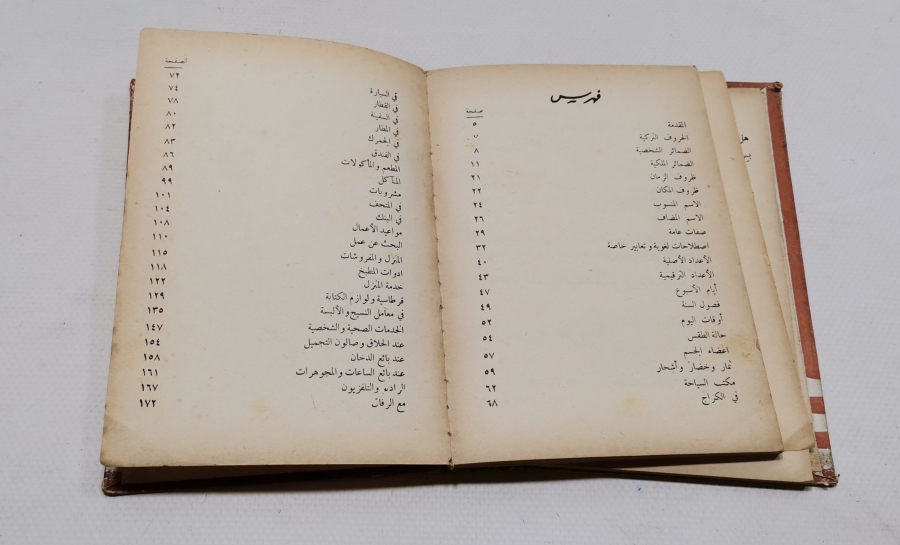 فهرس
صفحة
المقدمة ٥
الحروف التركية ٧
الضمائر الشخصية ٨
الضمائر الملكية ١١
ظروف الزمان ٢١
ظروف المكان ٢٢
الاسم المنسوب ٢٤
الاسم المضاف ٢٦
صفات عامة ٢٩
اصطلاحات لغوية و تعابير خاصة ٣٢
الأعداد الأصلية ٤٠
الأعداد الترقيمية ٤٣
أيام الأسبوع ٤٧
فصول السنة ٤٩
أوقات اليوم ٥٢
حالة الطقس ٥٤
اعضاء الجسم ٥٧
ثمار وخضار وأشجار ٥٩
مكتب السياحة ٦٢
في الكراج ٦٨
الصفحة
في السيارة ٧٢
في القطار ٧٤
في السفينة ٧٨
في المطار ٨٠
في الجمرك ٨٢
في الفندق ٨٣
المطعم والمأكولات ٨٦
المآكل ٨٩
مشروبات ٩٩
في المتحف ١٠١
في البنك ١٠٤
مواعيد الأعمال ١٠٨
البحث عن عمل ١١٠
المنزل والمفروشات ١١٥
ادوات المطبخ ١١٨
خدمة المنزل ١٢٢
قرطاسية ولوازم الكتابة ١٢٩
في معامل النسيج والألبسة ١٣٥
الخدمات الصحية والشخصية ١٤٧
عند الحلاق وصالون التجميل ١٥٤
عند بائع الدخان ١٥٨
عند بائع الساعات والمجوهرات ١٦١
الراديو والتلفزيون ١٦٧
مع الرفاق ١٧٢
هل